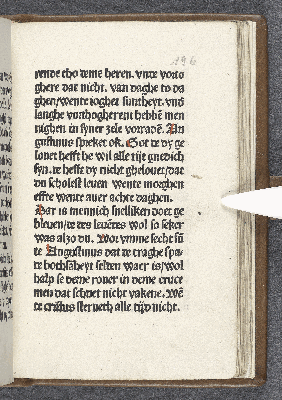 196
rende tho deme heren. vnde vorto
ghere dat nicht. van daghe to da
ghen/wente ioghet suntheyt. vnd
langhe vorthogherent hebbē men
nighen in syner zele vorradē. Au
gustinus spreket ok. Got te dy ge
louet hefft he wil alle tijt gnedich
syn. te hefft dy nicht ghelouet/dat
du scholest leuen wente morghen
effte wente auer achte daghen.
Dar is mennich snelliken doet ge
bleuen/te des leuēdes wol so seker
was alzo du. Wor vmme secht sū
te Augustinus dat te traghe spa
te bothsāheyt selden waer is/wol
halp se deme rouer in deme cruce
men dat schuet nicht vakene. Wē
te cristus sterueth alle tijd nicht.